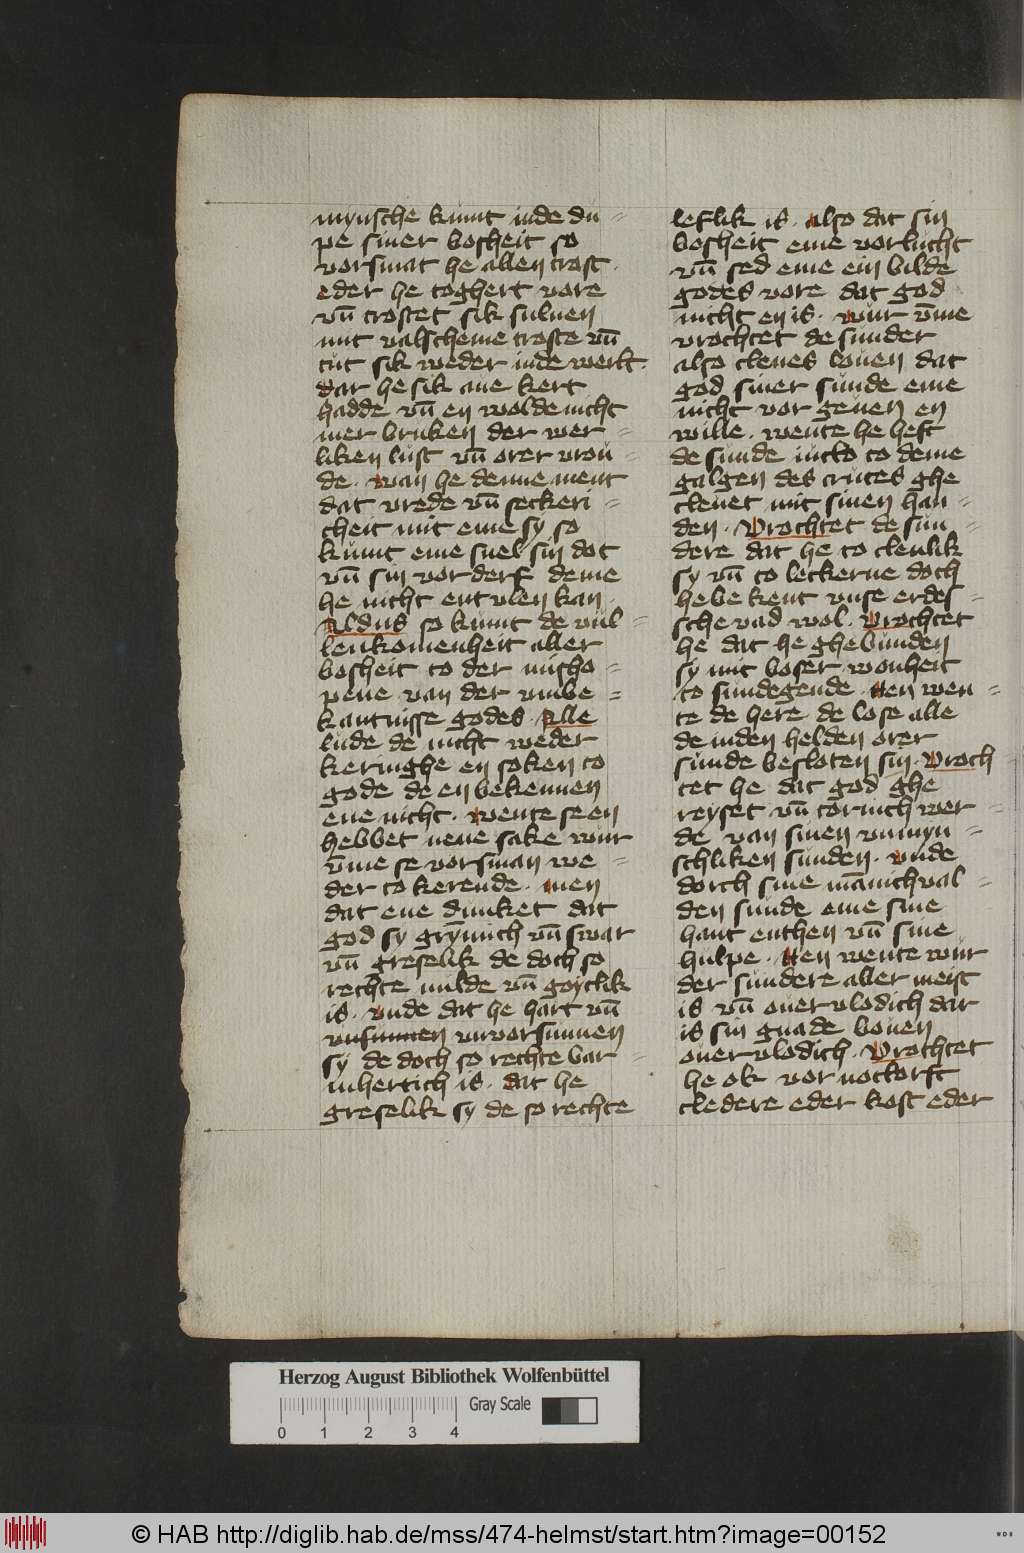 mynsche kumt inde du=
pe siner bosheit so
vorsmat he allen trost.
eder he toghert vore
vn̄ trostet sik suluen
mit valscheme troste vn̄
tut sik weder inde werlt.
dar he sik ane kert
hadde vn̄ en wolde nicht
mer bruken der wer=
liken lust vn̄ orer vrou=
de. wan he denne ment
dat vrede vn̄ seckeri=
cheit mit eme sy so
kumt eme snel sin dot
vn̄ sin vorderf deme
he nicht entvlen kan.
Aldus so kumt de vul=
lenkomenheit aller
bosheit to der misho=
pene van der vnbe=
kantnisse godes. Alle
lude de nicht weder
keringhe en soken to
gode de en bekennen
ene nicht. wente se en
hebbet nene sake wur
v̄me se vorsman we=
der to kerende. men
dat ene dunket dat
god sy gry̅mich vn̄ swar
vn̄ greselik de doch so
rechte milde vn̄ goytlik
is. vnde dat he hart vn̄
vnsunnen vnvorsunnen
sy de doch so rechte bar=
mhertich is. dat he
greselik sy de so rechte
leflik is. also dat sin
bosheit eme vorlucht
vn̄ sed eme ein bilde
godes vore dat god
nicht en is. wur v̄me
vrochtet de sunder
also clenes louen dat
god siner sunde eme
nicht vor geuen en
wille. wente he heft
de sunde iucto to deme
galgen des cruces ghe
cleuet mit sinen han=
den. Vrochtet de sun=
dere dat he to clenlik
sy vn̄ to leckerne doch
he bekent vnse erdes=
sche vad wol. Vrochtet
he dat he ghebunden
sy mit boser wonheit
to sundegende. Nen wen=
te de here de lose alle
de inden helden orer
sunde besloten sin. Vroch
tet he dat god ghe
reyset vn̄ tornich wer=
de van sinen vnmyn=
schliken sunden. vnde
dorch sine ma̅nichval=
den sunde eme sine
hant enthen vn̄ sine
hulpe. Nen wente wur
der sundere aller meist
is vn̄ ouervlodich dar
is sin gnade bouen
ouervlodich. Vrochtet
he ok vor notdorft
cledere eder kost eder
Herzog August Bibliothek Wolfenbüttel
Gray Scale
0 1 2 3 4
© HAB http://diglib.hab.de/mss/474-helmst/start.htm?image=00152
WDB